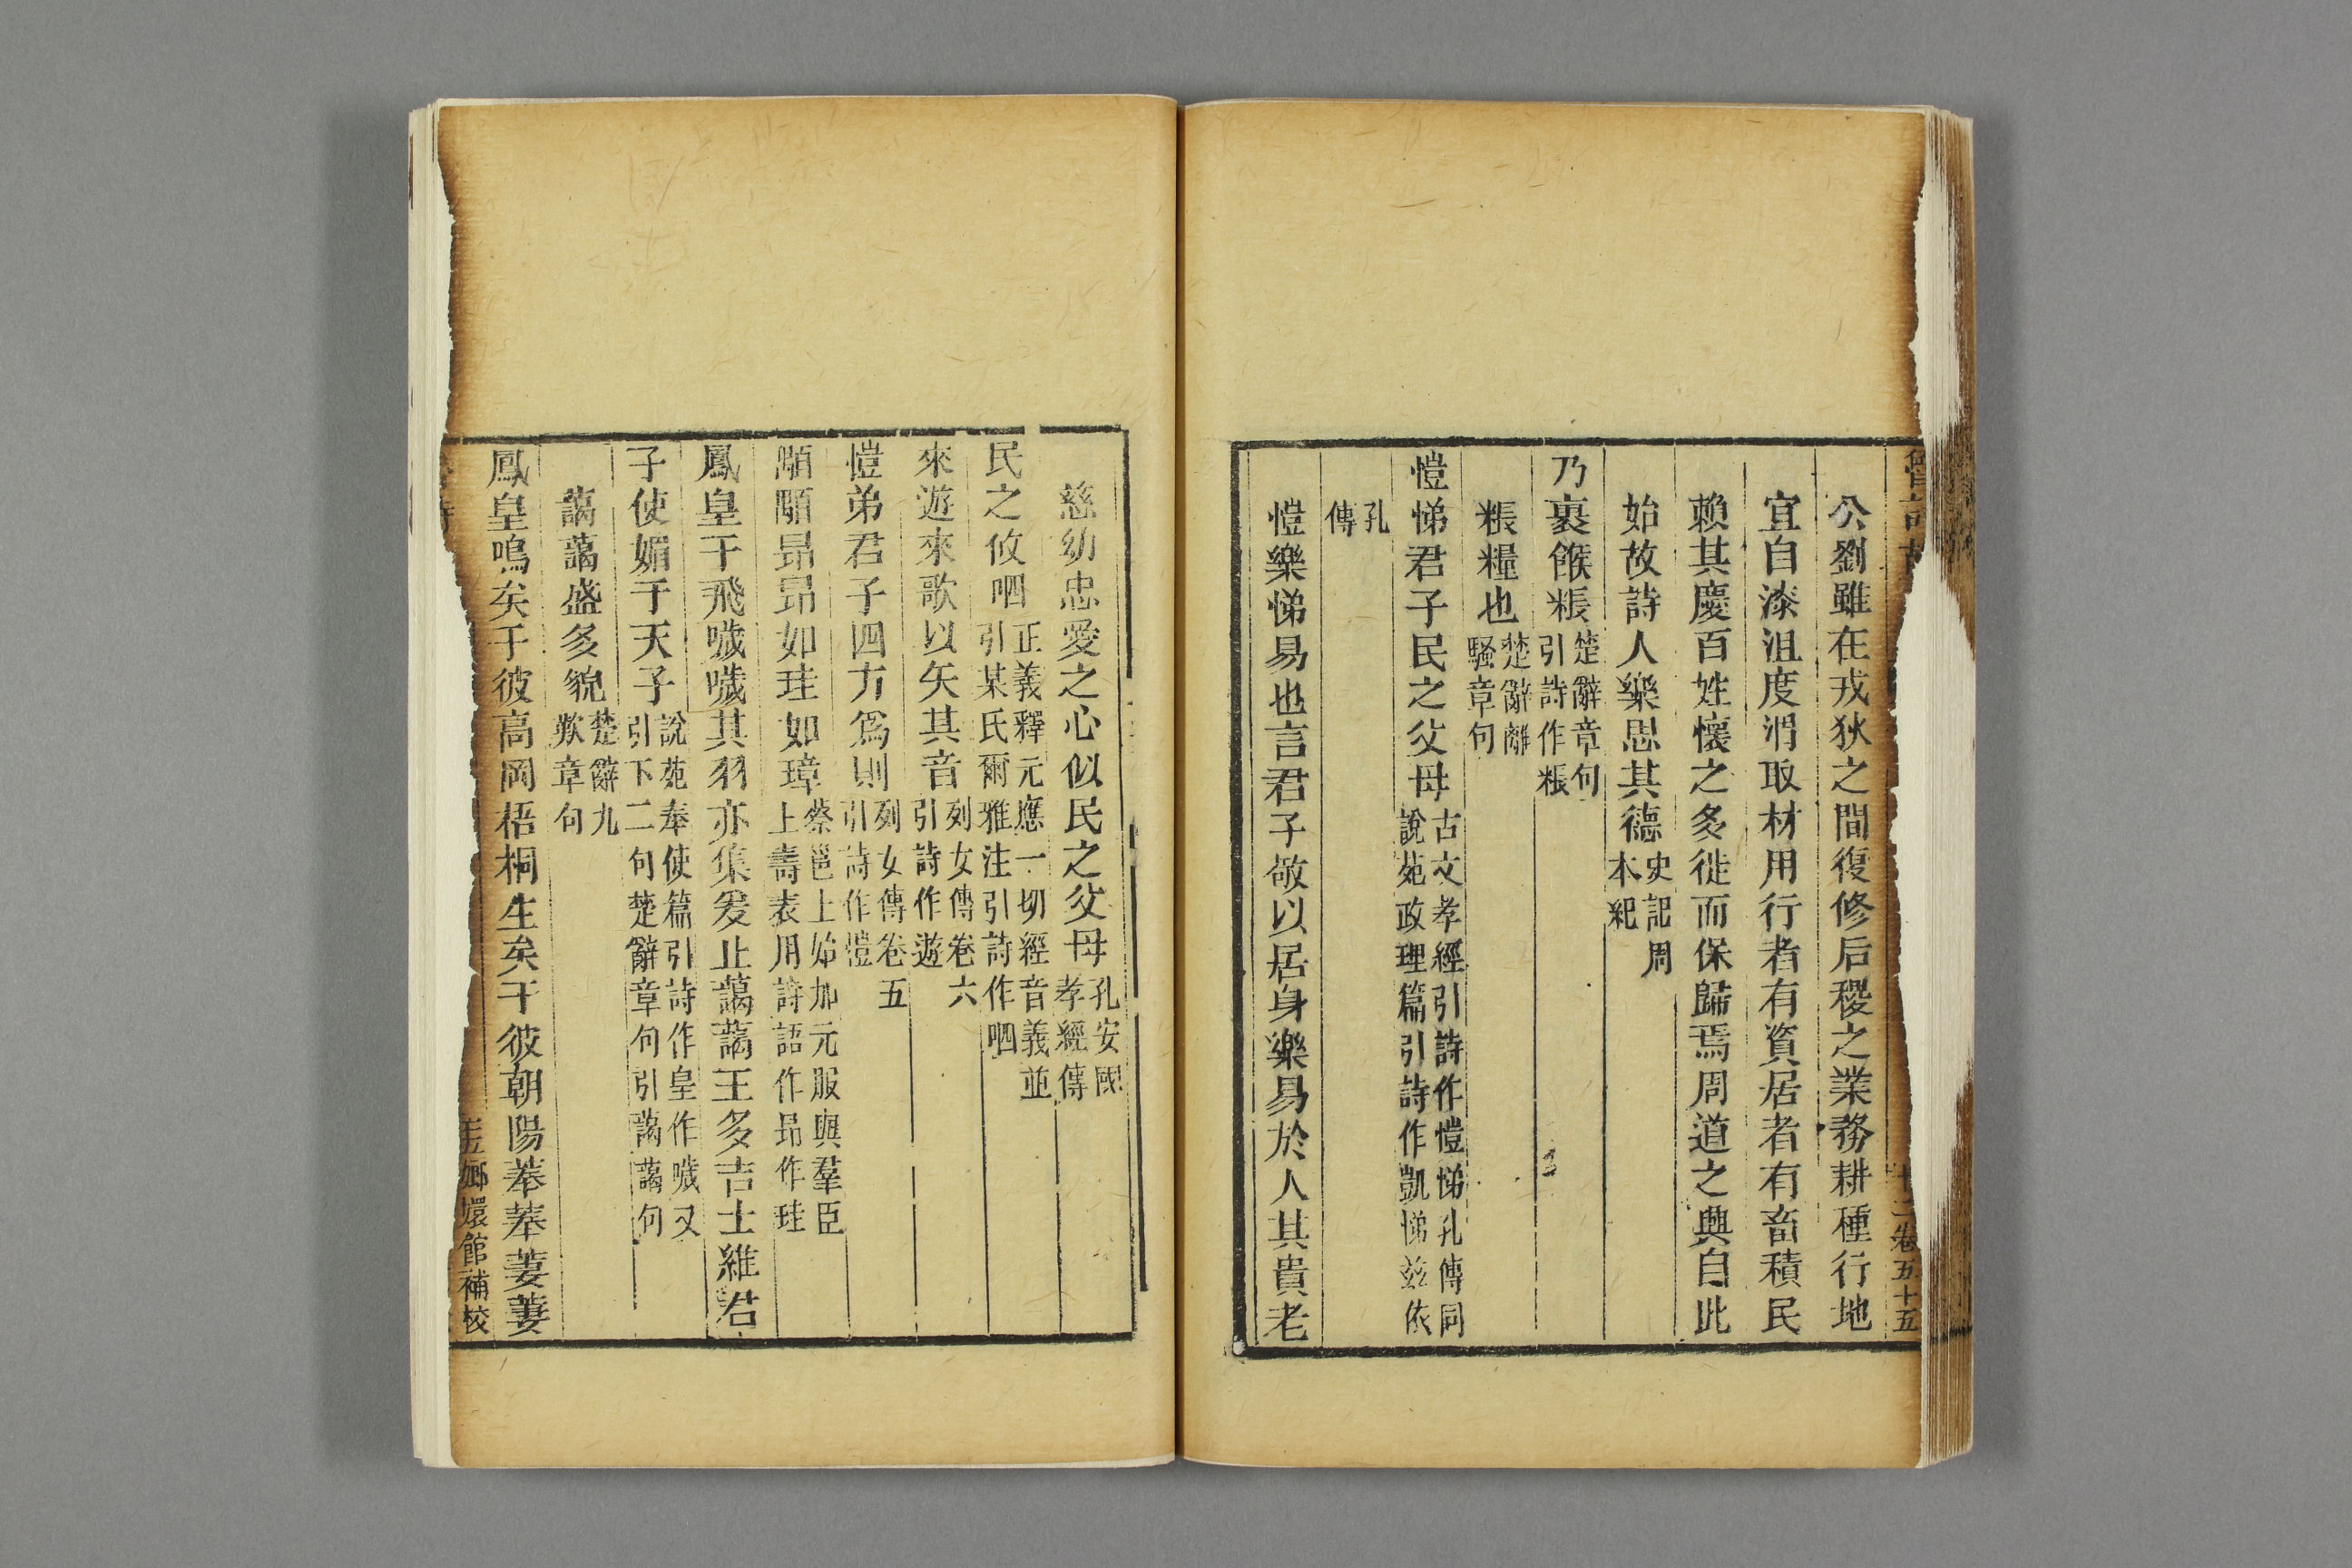 公劉雖在戎狄之間復修后稷之業務耕種行地
宜自漆沮度渭取材用行者有資居者有畜積民
賴其慶百姓懷之多徙而保歸焉周道之興自此
始故詩人樂思其德史記周本紀
乃裹餱粻楚辭章句引詩作粻
粻糧也楚辭離騷章句
愷悌君子民之父母古文孝經引詩作愷悌孔傳同說苑政理篇引詩作凱悌茲依
孔傳
愷樂悌易也言君子敬以居身樂易於人其貴老
慈幼忠愛之心似民之父母孔安國孝經傳
民之攸呬正義釋元應一切經音義並引某氏爾雅注引詩作呬
來遊來歌以矢其音列女傳卷六引詩作遊
愷弟君子四方為則列女傳卷五引詩作愷
顒顒昻昻如珪如璋蔡邕上始加元服與羣臣上壽表用詩語作昻作珪
鳳皇于飛噦噦其羽亦集爰止藹藹王多吉士維君
子使媚于天子說苑奉使篇引詩作皇作噦又引下二句楚辭章句引藹藹句
藹藹盛多貌楚辭九歎章句
鳳皇鳴矣于彼高岡梧桐生矣于彼朝陽菶菶萋萋
嫏嬛館補校
卷五十五